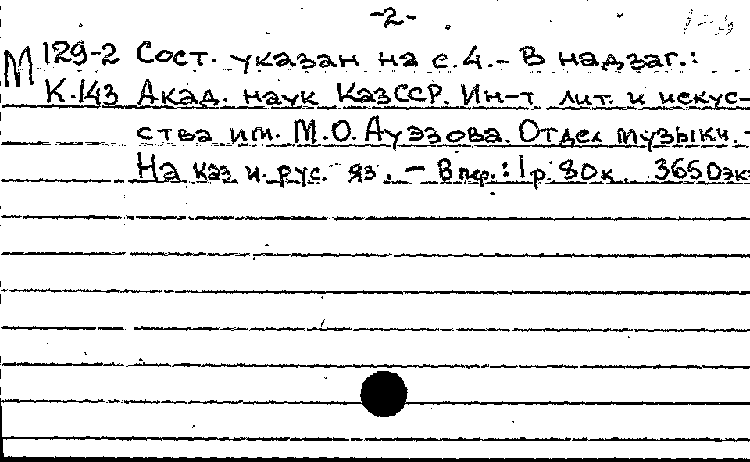 -2-
М 129-2 Сост. указан на с.4.- В надзаг.:
К.143 Акад. наук КазССР. Ин-т лит. и искус-
ства им. М.О.Ауэзова. Отдел музыки. -
На каз. и рус. яз. - В пер.: 1р. 80к. 3650экз